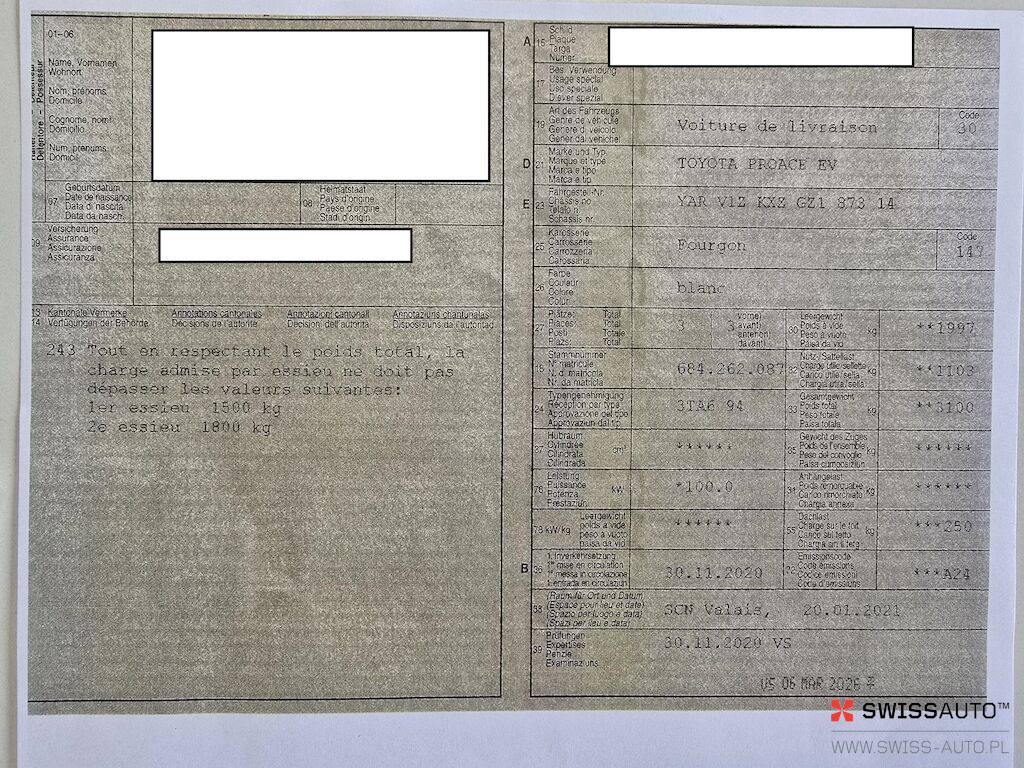 01–06
Name, Vornamen
Wohnort
Nom, prénoms
Domicile
Cognome, nomi
Domicilio
Num, prenums
Domicil
Détenteur - Possesseur
07
Geburtsdatum
Date de naissance
Data di nascita
Data da nasch.
08
Heimatstaat
Pays d'origine
Paese d'origine
Stadi d'origin
09
Versicherung
Assurance
Assicurazione
Assicuranza
13
14
Kantonale Vermerke
Verfügungen der Behörde
Annotations cantonales
Décisions de l'autorité
Annotazioni cantonali
Decisioni dell'autorità
Annotaziuns chantunalas
Disposiziuns da l'autoritad
243 Tout en respectant le poids total, la
charge admise par essieu ne doit pas
dépasser les valeurs suivantes:
1er essieu 1500 kg
2e essieu 1800 kg
A 15
Schild
Plaque
Targa
Numer
17
Bes. Verwendung
Usage spécial
Uso speciale
Diever spezial
19
Art des Fahrzeugs
Genre de véhicule
Genere di veicolo
Gener dal vehichel
Voiture de livraison
Code
30
D 21
Marke und Typ
Marque et type
Marca e tipo
Marca e tip
TOYOTA PROACE EV
E 23
Fahrgestell-Nr.
Châssis no
Telaio n.
Schassis nr.
YAR V1Z KXZ GZ1 873 14
25
Karosserie
Carrosserie
Carrozzeria
Carossaria
Fourgon
Code
147
26
Farbe
Couleur
Colore
Colur
blanc
27
Plätze: Total
Places: Total
Posti: Totale
Plazs: Total
3
3
vorne)
avant)
anteriori)
davant)
30
Leergewicht
Poids à vide
Peso a vuoto
Paisa da vid
kg
**1997
18
Stammnummer
N° matricule
N. di matricola
Nr. da matricla
684.262.087
32
Nutz-/Sattellast
Charge utile/sellette
Carico utile/sella
Chargia utila/sella
kg
**1103
24
Typengenehmigung
Réception par type
Approvazione del tipo
Approvaziun dal tip
3TA6 94
33
Gesamtgewicht
Poids total
Peso totale
Paisa totala
kg
**3100
37
Hubraum
Cylindrée
Cilindrata
Cilindrada
cm³
******
35
Gewicht des Zuges
Poids de l'ensemble
Peso del convoglio
Paisa cumposiziun
kg
******
76
Leistung
Puissance
Potenza
Prestaziun
kW
*100.0
31
Anhängelast
Poids remorquable
Carico rimorchiato
Chargia annexa
kg
******
78 kW/kg
Leergewicht
poids à vide
peso a vuoto
paisa da vid
******
55
Dachlast
Charge sur le toit
Carico sul tetto
Chargia sin il tetg
kg
***250
B 36
1. Inverkehrsetzung
1re mise en circulation
1a messa in circolazione
1. entrada en circulaziun
30.11.2020
72
Emissionscode
Code émissions
Codice emissioni
Code d'emissiuns
***A24
38
(Raum für Ort und Datum)
(Espace pour lieu et date)
(Spazio per luogo e data)
(Spazi per lieu e data)
SCN Valais, 20.01.2021
39
Prüfungen
Expertises
Perizie
Examinaziuns
30.11.2020 VS
06 MAR 2026
SWISSAUTO™
WWW.SWISS-AUTO.PL